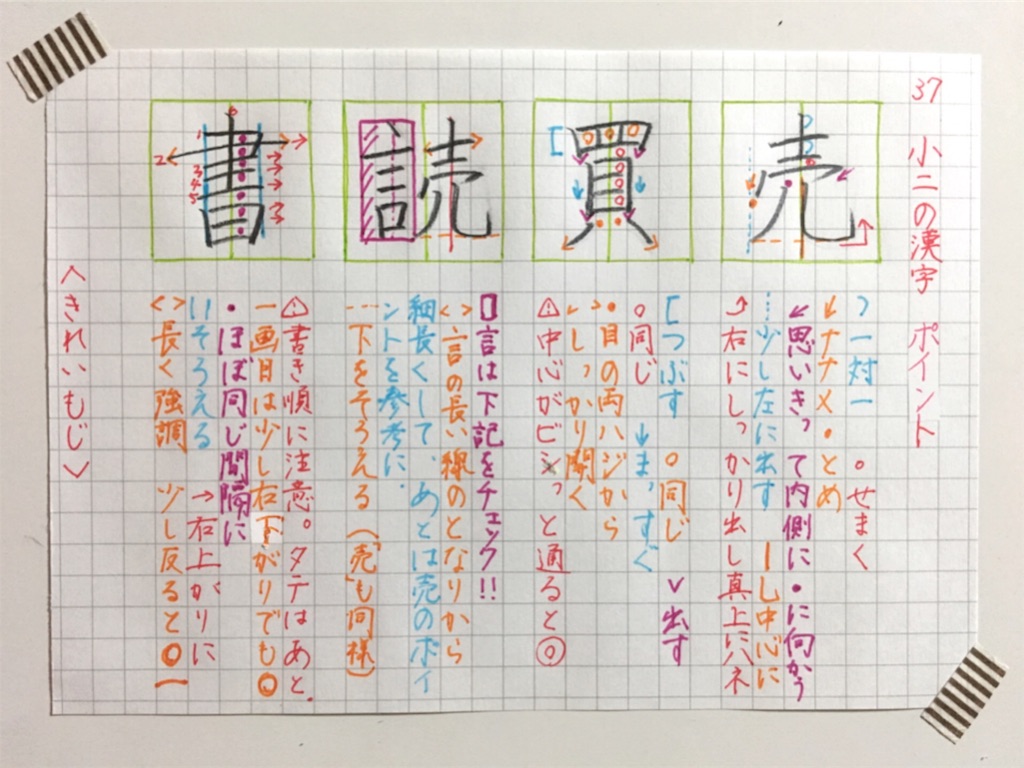 37 小二の漢字 ポイント
売
買
読
書
一対一 。せまく
ナナメ・とめ
思いきって内側に・に向かう
少し左に出す し中心に
右にしっかり出し真上にハネ
つぶす 同じ 出す
同じ まっすぐ
目の両ハジから
しっかり開く
中心がビシっと通ると◎
言は下記をチェック!!
言の長い線のとなりから
細長くして、あとは売のポイ
ントを参考に。
下をそろえる(「売」も同様)
書き順に注意。タテはあと。
一画目は少し右下がりでも◎
・ほぼ同じ間隔に
いそろえる →右上がりに
長く強調 少し反ると◎
1
2
3
4
5
6
〈きれいもじ〉